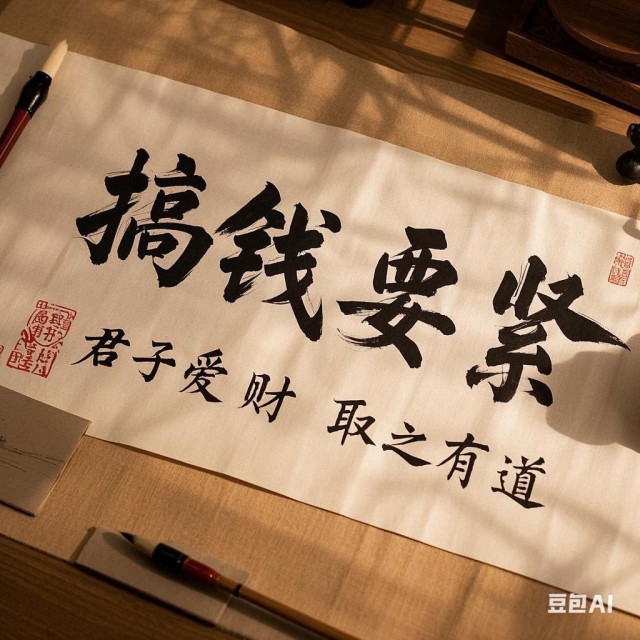 搞钱要紧
君子爱财 取之有道
豆包AI